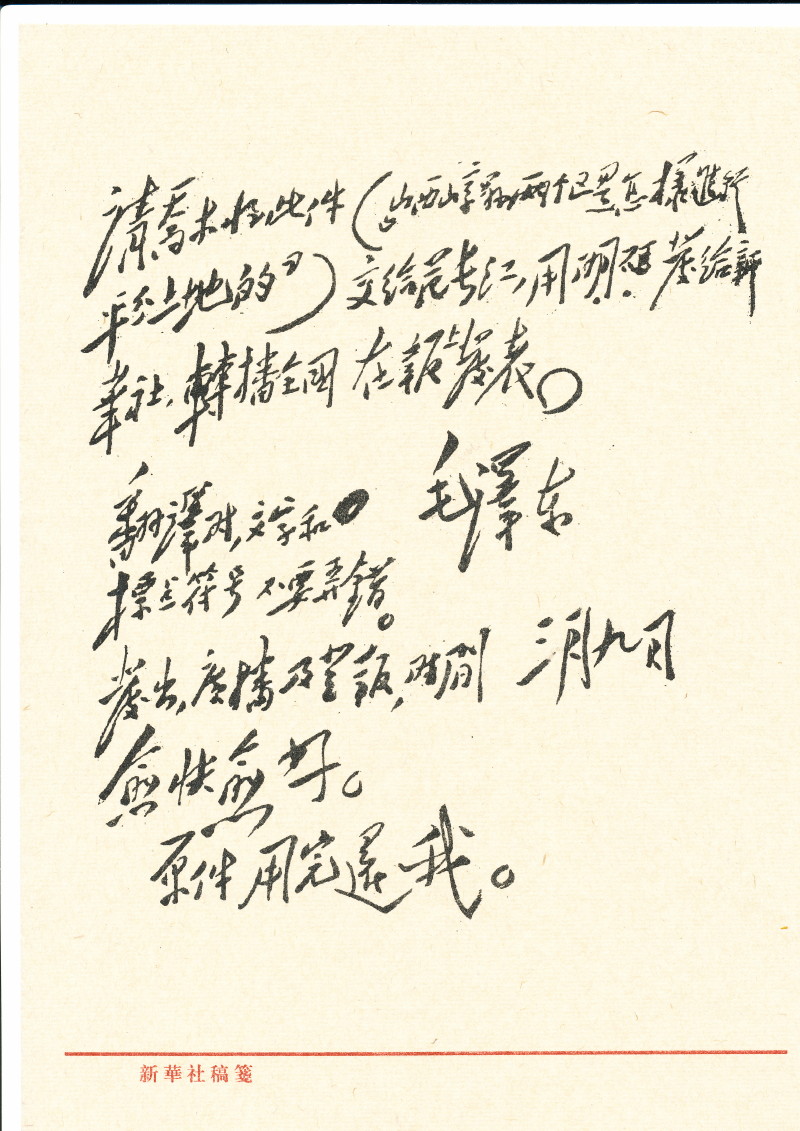 請喬木将此件（《山西崞縣兩个区是怎樣進行
平分土地的》）交給范長江，用明碼發給新
華社，轉播全國在報上發表。
毛澤东
翻譯时，文字和
標点符号不要弄錯。
發出，廣播及登報，时間
三月九日
愈快愈好。
原件用完還我。
新華社稿箋